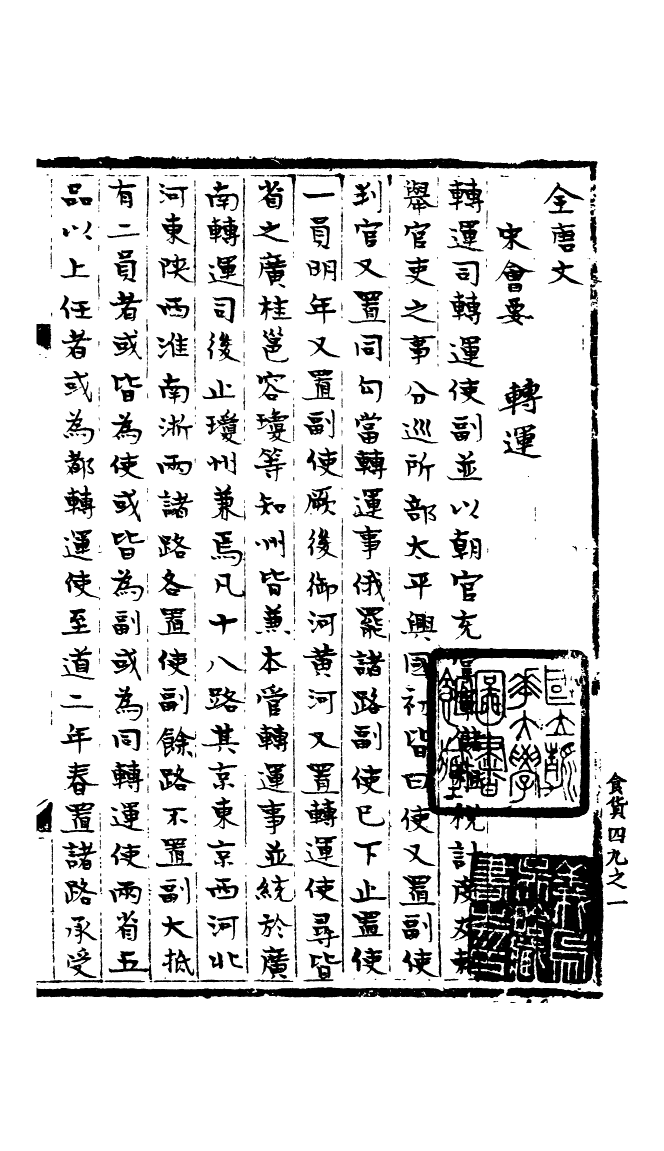 全唐文
宋會要 轉運
轉運司轉運使副並以朝官充
稅計度
舉官吏之事分巡所部太平興國初皆曰使又置副使
判官又置同勾當轉運事俄罷諸路副使已下止置使
一員明年又置副使厥後御河黃河又置轉運使尋皆
省之廣桂邕容瓊等知州皆兼本管轉運事並統於廣
南轉運司後止瓊州兼焉凡十八路其京東京西河北
河東陝西淮南浙兩諸路各置使副餘路不置副大抵
有二員者或皆為使或皆為副或為同轉運使兩省五
品以上任者或為都轉運使至道二年春置諸路承受
國立
華大學
圖書
食貨四九之一